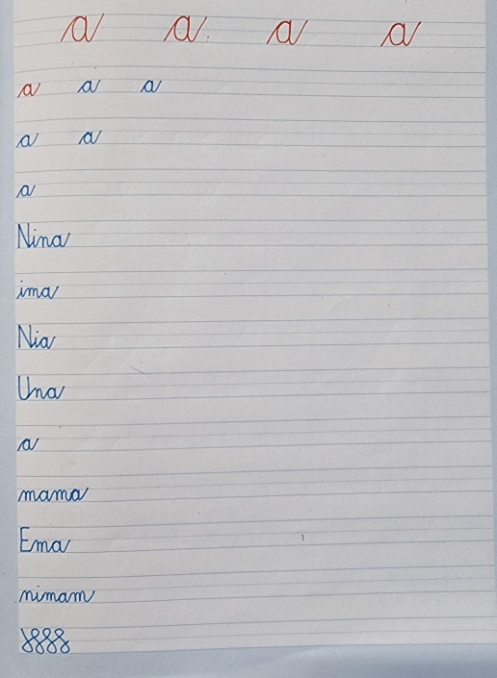 a a a a
a a a
a a
a
Nina
ima
Nia
Una
a
mama
Ema
nimam